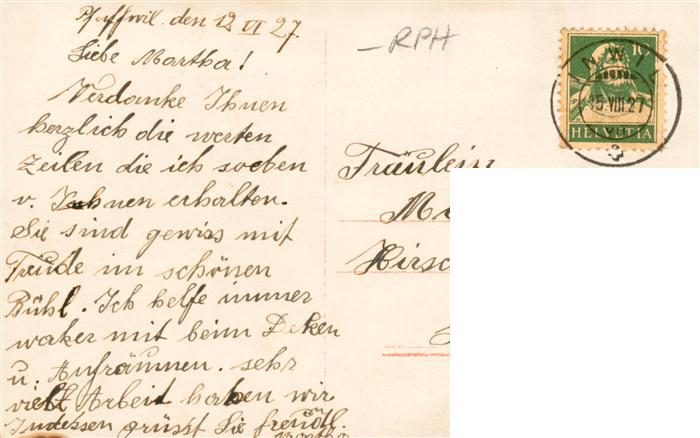 Pfaffwil. den 12 VI 27.
Liebe Martha!
Verdanke Ihnen
herzlich die werten
Zeilen die ich soeben
v. Ihnen erhalten.
Sie sind gewiss mit
Freude im schönen
Bühl. Ich helfe immer
waker mit beim Deken
u. Aufräumen. sehr
vielt Arbeit haben wir
Indessen grüsst Sie freundl.
Martha
-RPH
10
HELVETIA
INWIL
15.VIII 27
Fräulein
M
Hirsc